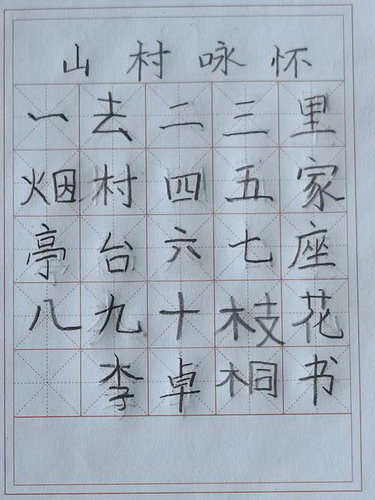 山村咏怀
一去二三里
烟村四五家
亭台六七座
八九十枝花
李卓桐书